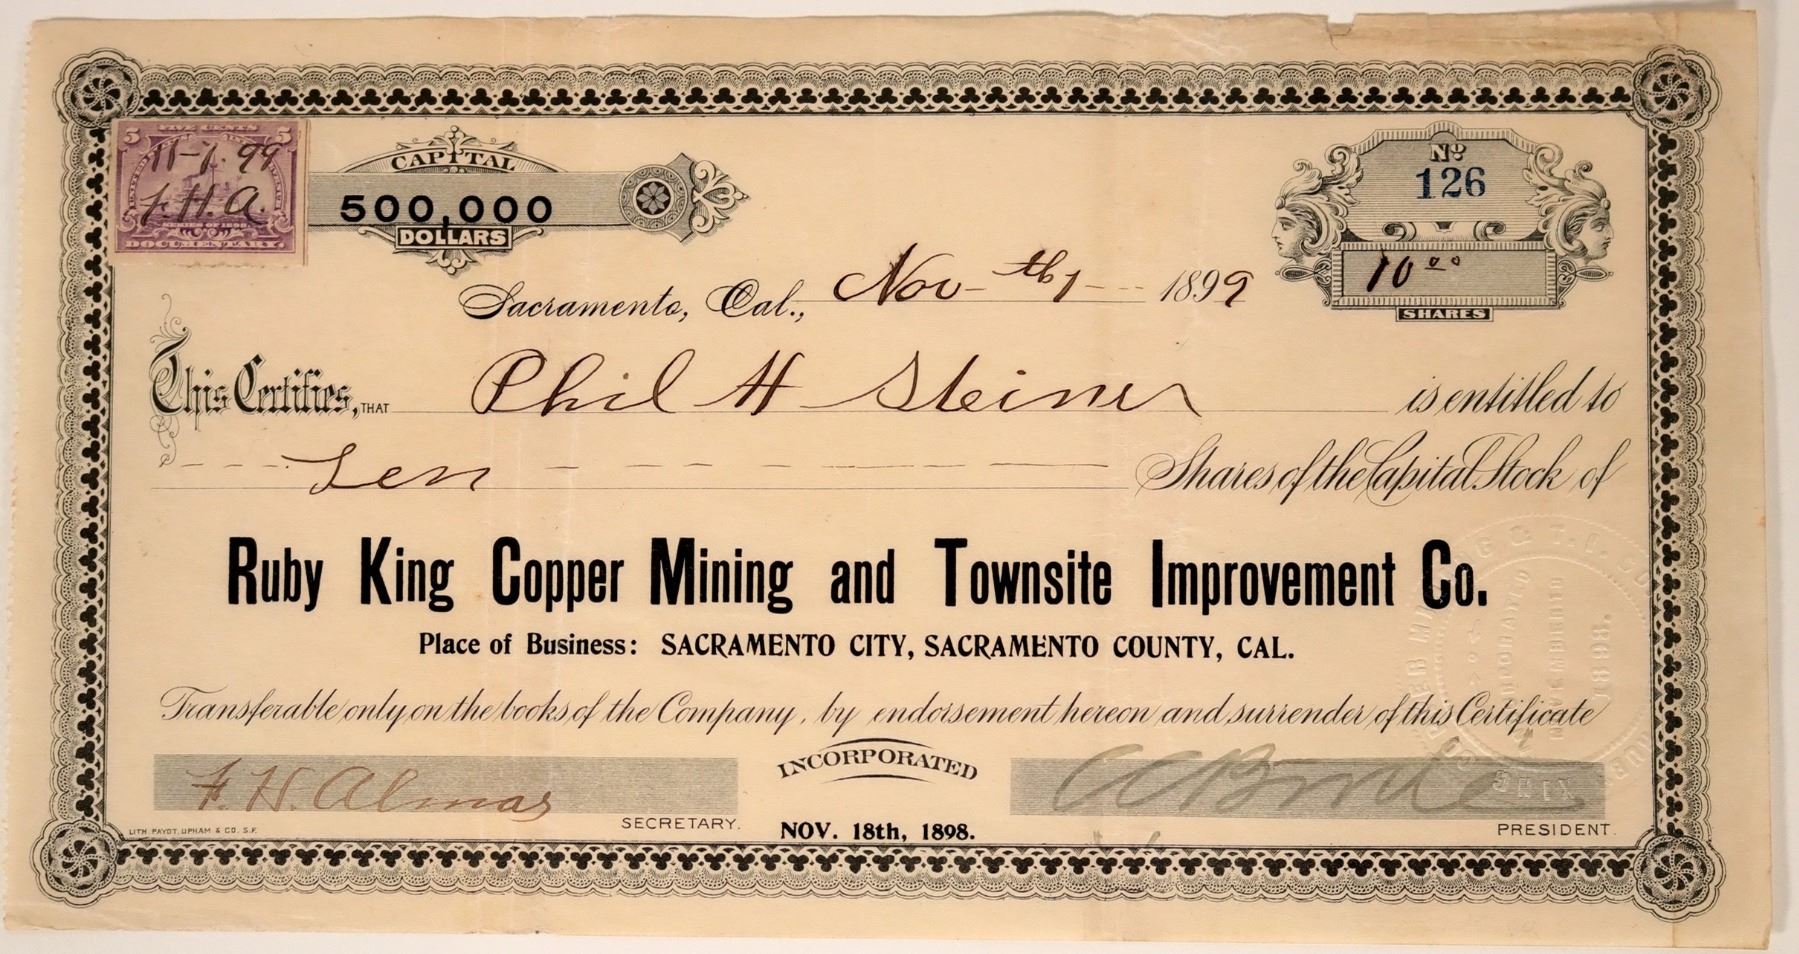 FIVE CENTS
5 5
11-1.99
F. H. A.
SERIES OF 1898
DOCUMENTARY.
CAPITAL
500,000
DOLLARS
No
126
10 00
SHARES
Sacramento, Cal., Nov- th 1 1899
This Certifies, THAT Phil H Steiner is entitled to
Ten Shares of the Capital Stock of
Ruby King Copper Mining and Townsite Improvement Co.
Place of Business: SACRAMENTO CITY, SACRAMENTO COUNTY, CAL.
Transferable only on the books of the Company, by endorsement hereon and surrender of this Certificate
INCORPORATED
NOV. 18th, 1898.
F. H. Almas
SECRETARY.
PRESIDENT.
LITH. PAYOT, UPHAM & CO. S.F.
INCORPORATED
NOVEMBER 18
1898.